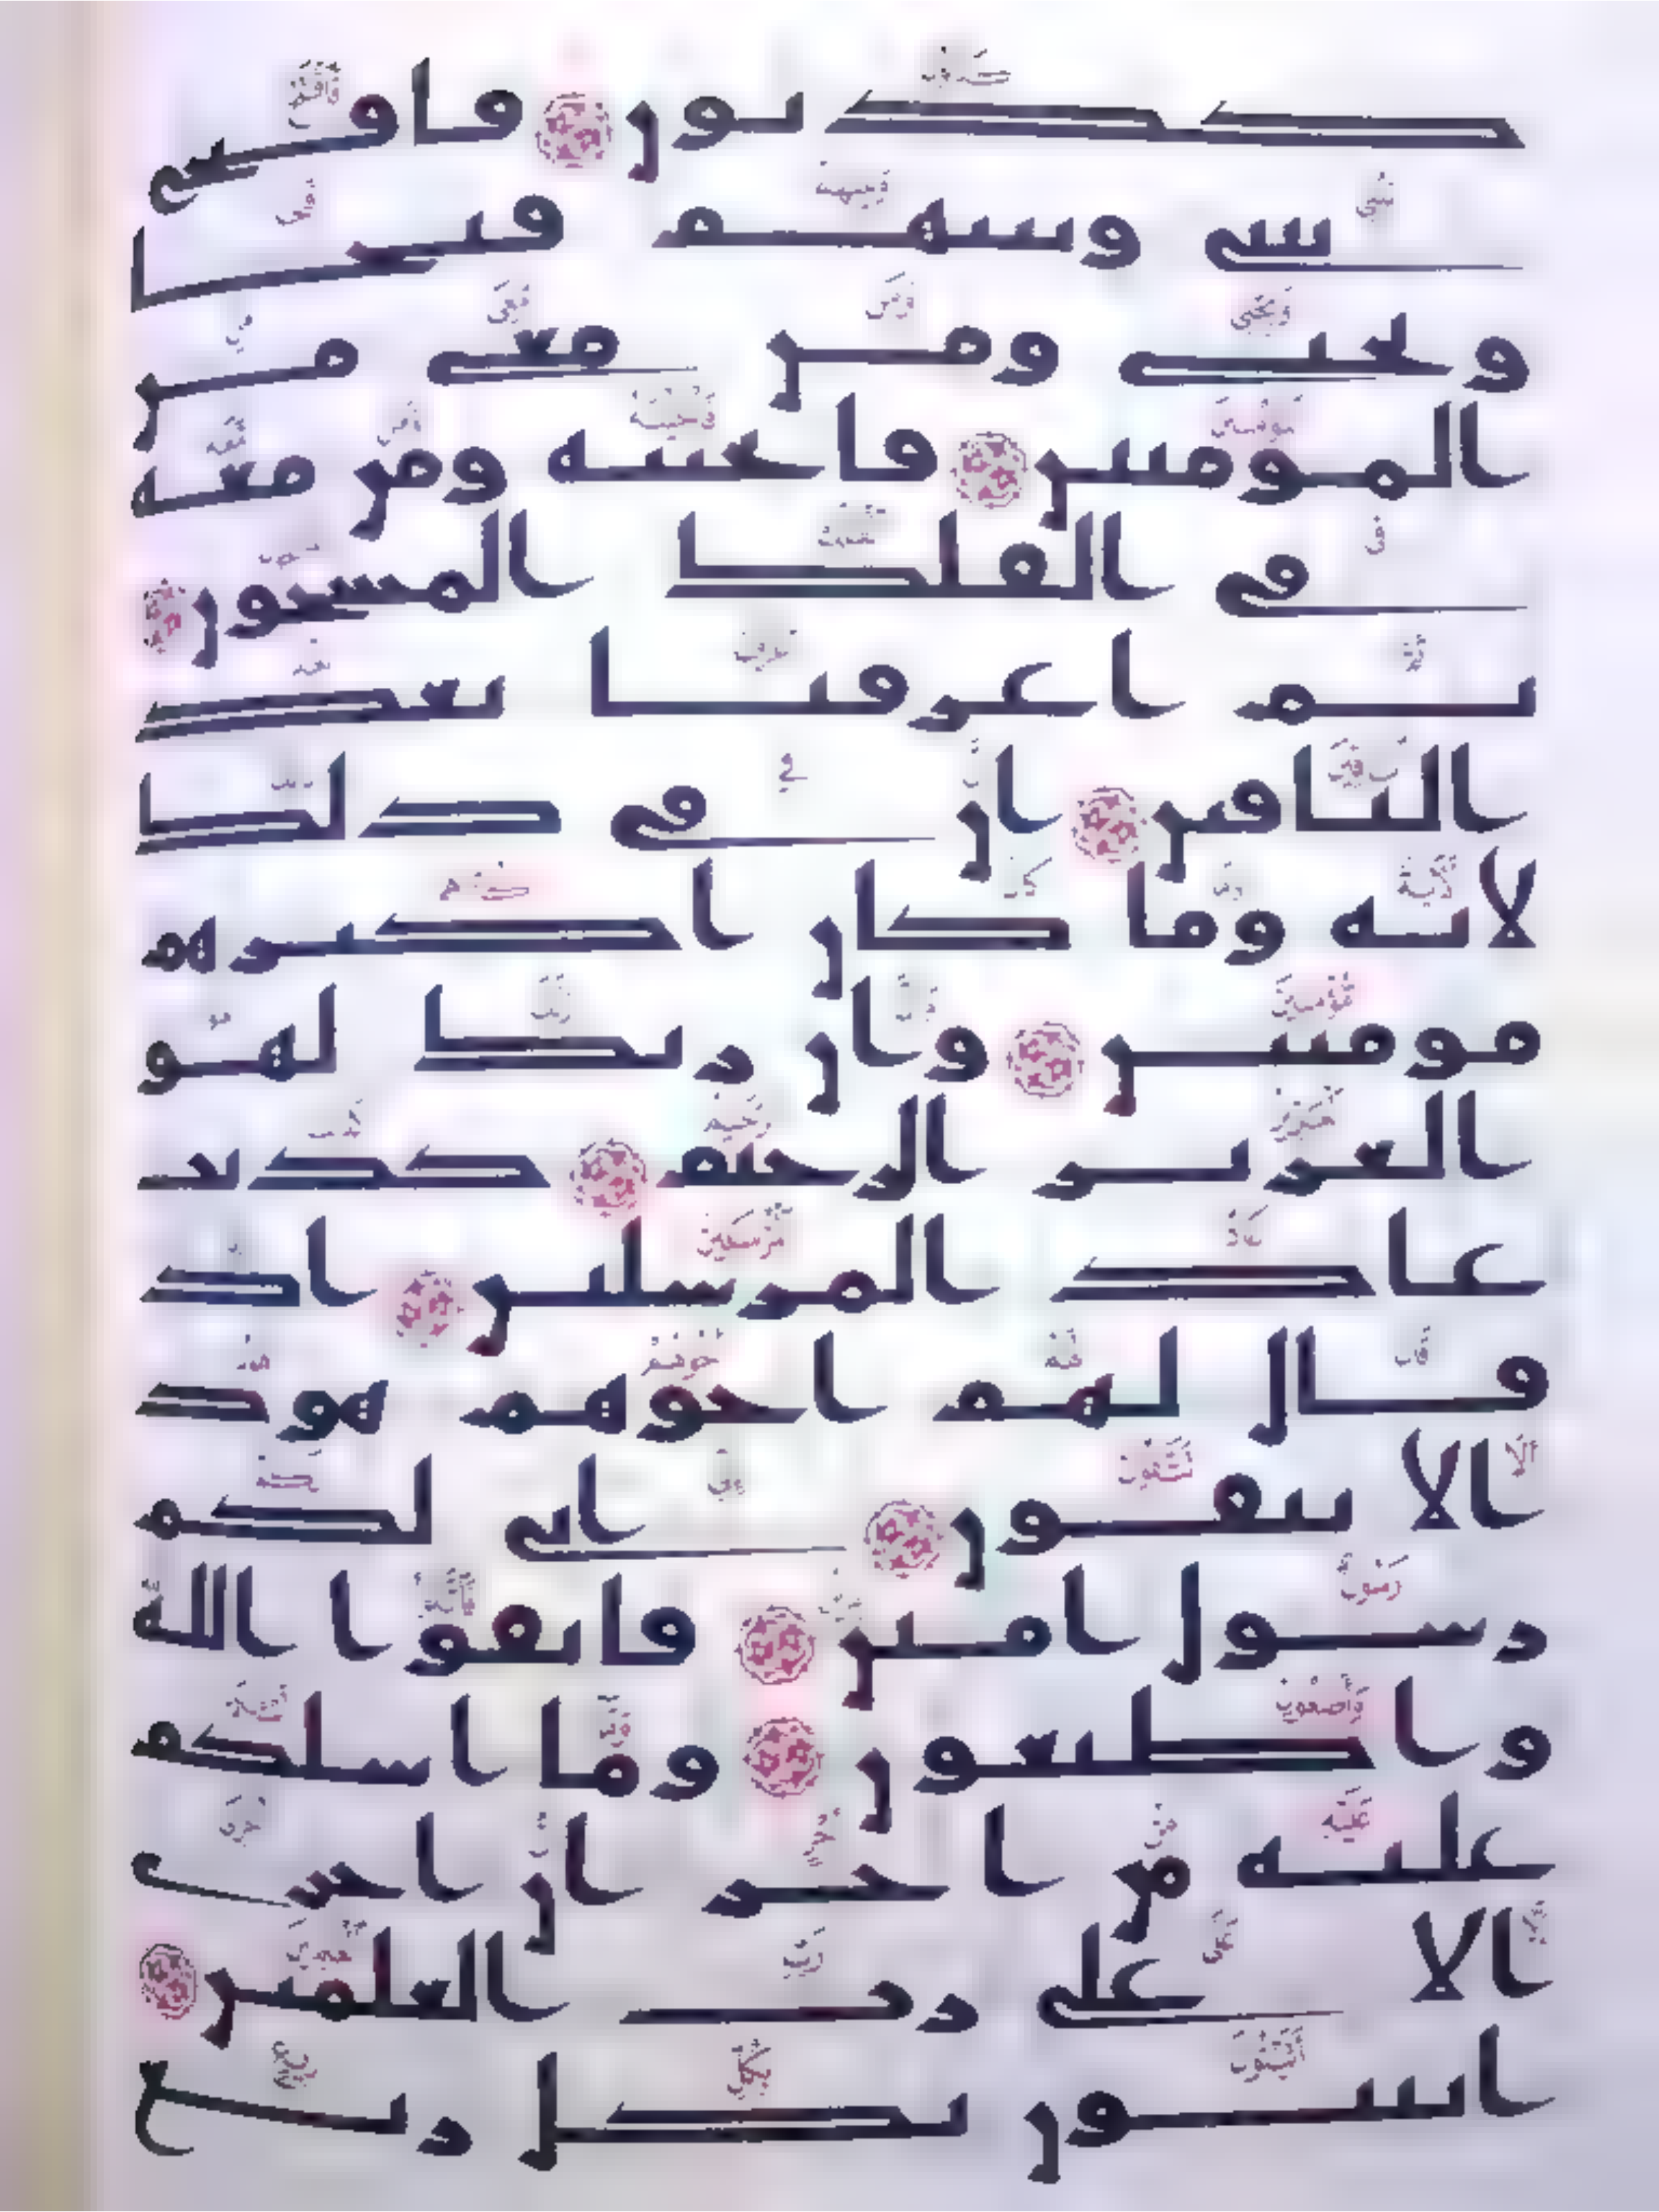 كذبون فافتح
بيني وبينهم فتحا
ونجني ومن معي من
المومنين فانجينه ومن معه
في الفلك المشحون
ثم اغرقنا بعد
الباقين ان في ذلك
لاية وما كان اكثرهم
مومنين وان ربك لهو
العزيز الرحيم كذبت
عاد المرسلين اذ
قال لهم اخوهم هود
الا تتقون اني لكم
رسول امين فاتقوا الله
واطيعون وما اسلكم
عليه من اجر ان اجري
الا على رب العلمين
اتبنون بكل ريع